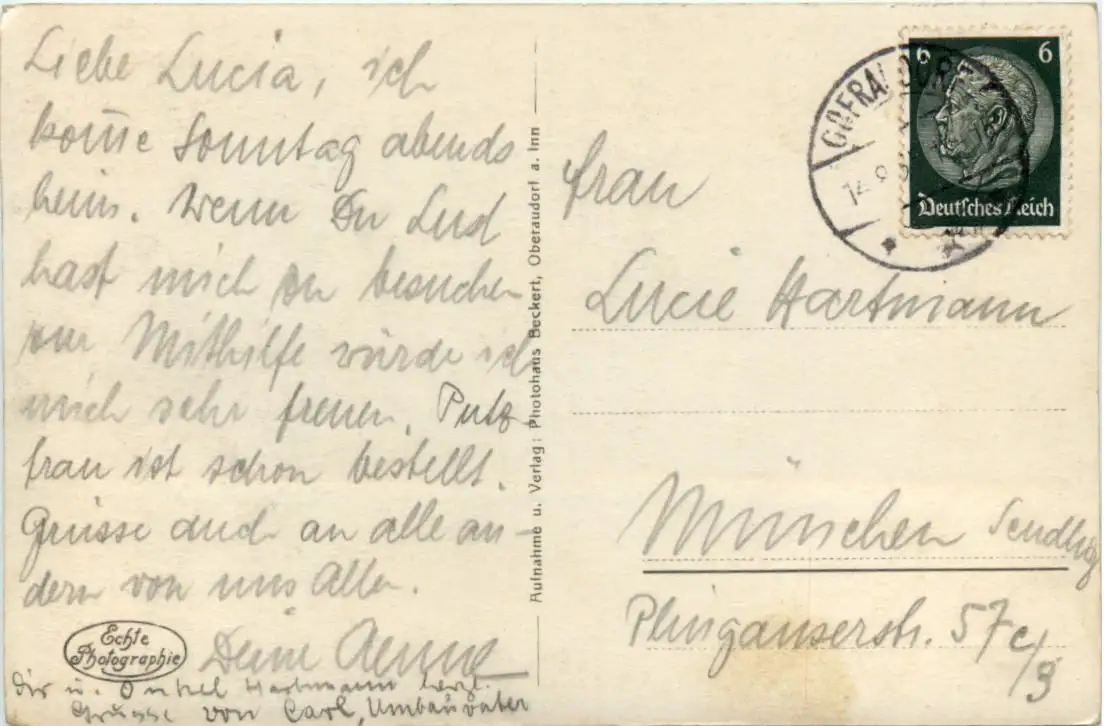 Liebe Lucia, ich
kom̄e Sonntag abends
heim. Wenn Du Lust
hast mich zu besuchen
zur Mithilfe würde ich
mich sehr freuen. Putz-
frau ist schon bestellt.
Grüsse auch an alle an-
dern von uns Allen.
Deine Aenne
Dir u. Onkel Hartmann herzl.
Grüsse von Carl, Umbauvater
Echte
Photographie
Aufnahme u. Verlag: Photohaus Beckert, Oberaudorf a. Inn
6 6
Deutsches Reich
14.9.
Frau
Lucie Hartmann
München Sendling
Plinganserstr. 57c/3